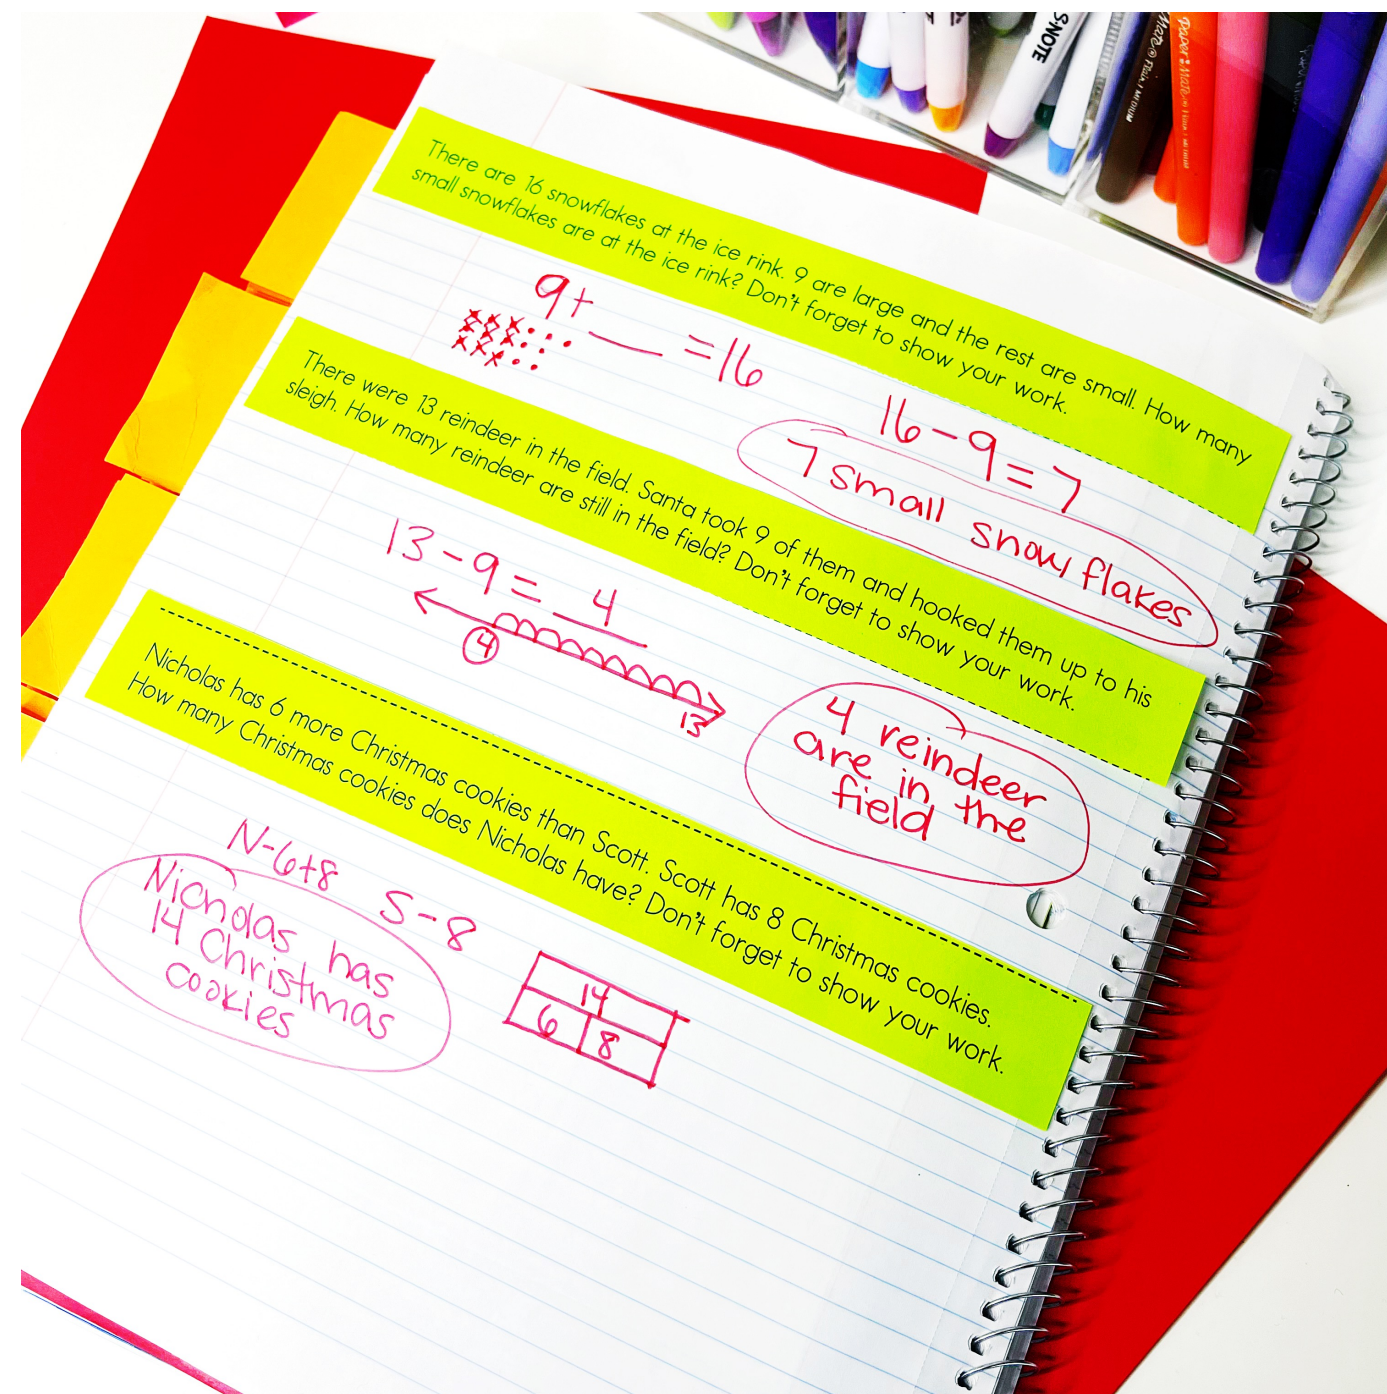 S•NOTE
Mate® Flair | MEDIUM
Paper•Mate®
There are 16 snowflakes at the ice rink. 9 are large and the rest are small. How many
small snowflakes are at the ice rink? Don't forget to show your work.
9+ ___ =16
16-9=7
7 small snowflakes
There were 13 reindeer in the field. Santa took 9 of them and hooked them up to his
sleigh. How many reindeer are still in the field? Don't forget to show your work.
13-9= 4
4
13
4 reindeer
are in the
field
Nicholas has 6 more Christmas cookies than Scott. Scott has 8 Christmas cookies.
How many Christmas cookies does Nicholas have? Don't forget to show your work.
N-6+8 S-8
Nicholas has
14 Christmas
cookies
14
6 8